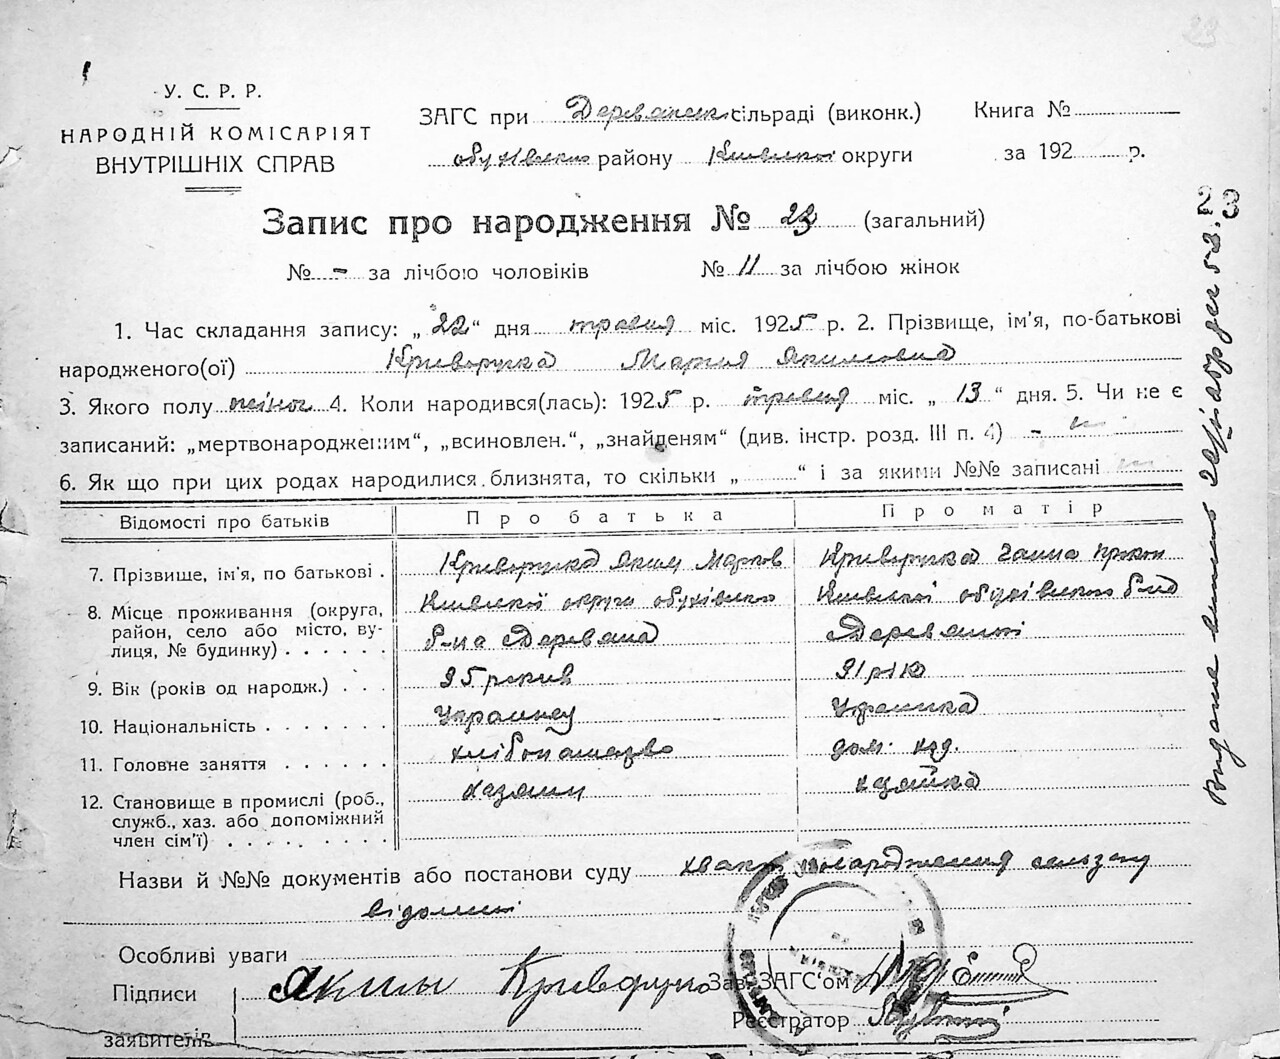 23
У. С. Р. Р.
НАРОДНІЙ КОМІСАРІЯТ
ВНУТРІШНІХ СПРАВ
ЗАГС при Деревянск сільраді (виконк.)
Книга №
району Київської округи
за 192 р.
Запис про народження № 23 (загальний)
№ - за лічбою чоловіків
№ 11 за лічбою жінок
1. Час складання запису: „22“ дня травня міс. 1925 р. 2. Прізвище, ім'я, по-батькові
народженого(ої) Криворучка Мария Якимовна
3. Якого полу жіноч 4. Коли народився(лась): 1925 р. травня міс. „13“ дня. 5. Чи не є
записаний: „мертвонародженим“, „всиновлен.“, „знайденям“ (див. інстр. розд. III п. 4) -
6. Як що при цих родах народилися близнята, то скільки „ “ і за якими №№ записані
Відомості про батьків
Про батька
Про матір
7. Прізвище, ім'я, по батькові .
Криворучка Яким Марков
Криворучка Ганна
8. Місце проживання (округа,
район, село або місто, ву-
лиця, № будинку) . . . . . .
Київської округи обухівского
Деревяна
Київської обухівского
Деревяної
9. Вік (років од народж.) . . .
35 років
31 рік
10. Національність . . . . . . .
Украинец
Украинка
11. Головне заняття . . . . . .
хлібопашезво
дом. хзд.
12. Становище в промислі (роб.,
служб., хаз. або допоміжний
член сім'ї) . . . . . . . . .
хазяин
хазяйка
Назви й №№ документів або постанови суду народження
відомий
Особливі уваги
Підписи
заявителів
Яким Криворучко
Зав. ЗАГС'ом
Реєстратор
23